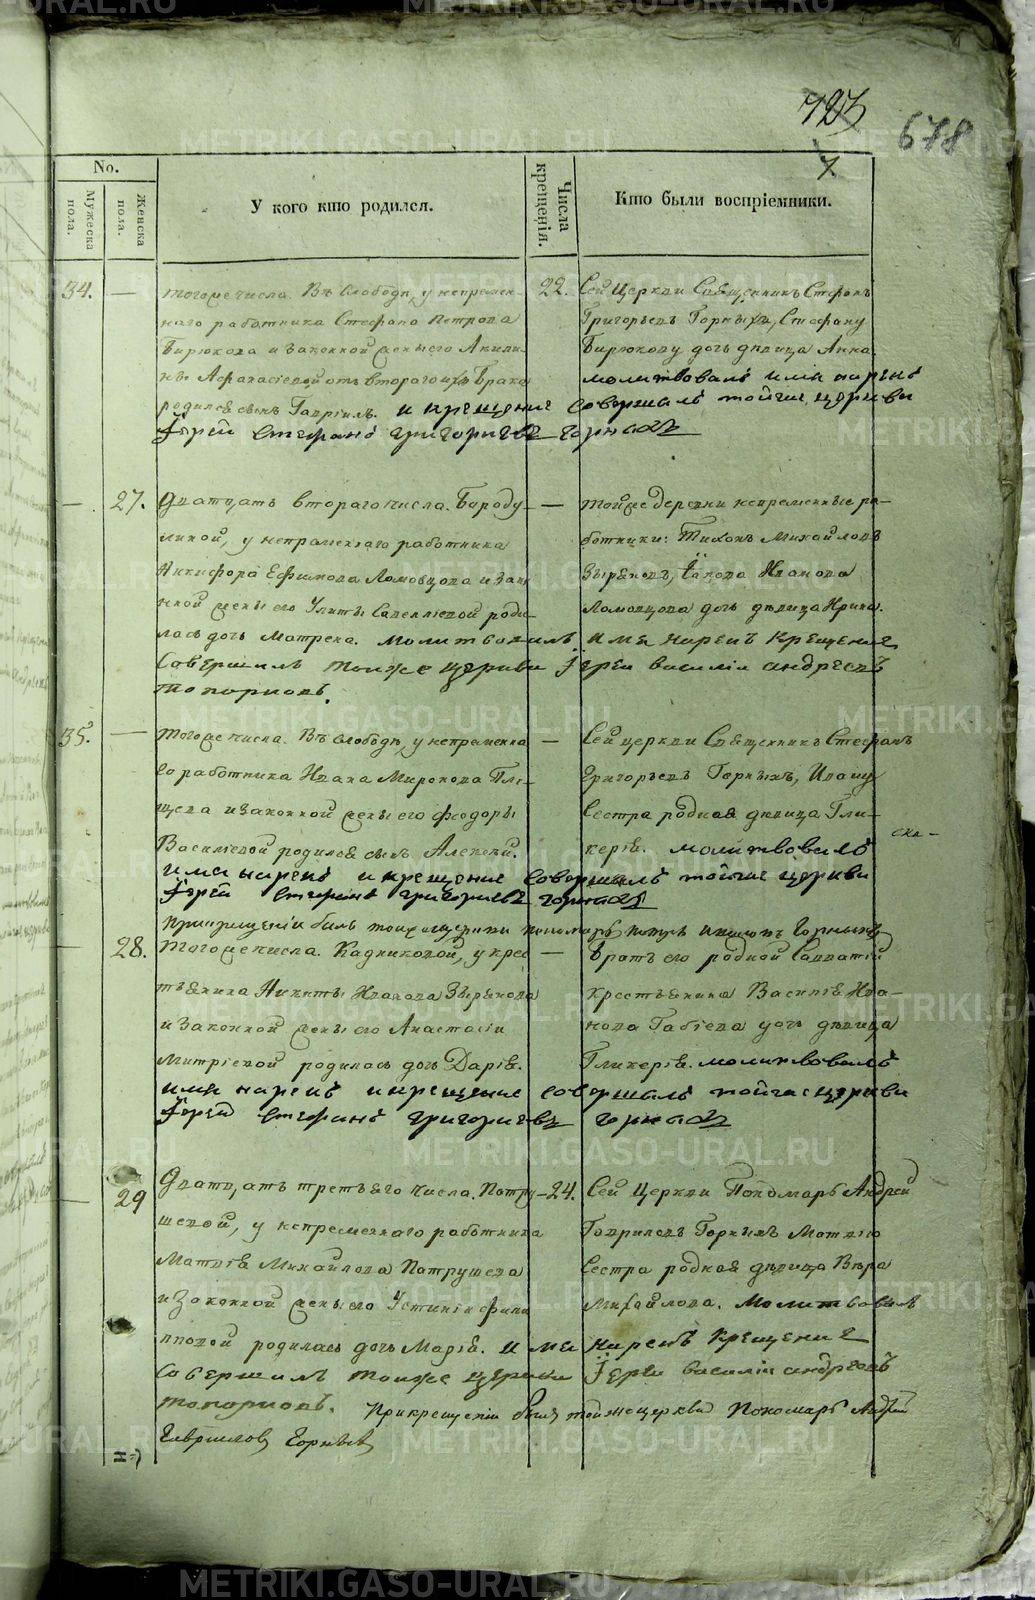 723
678
No.
Мужеска пола.
Женска пола.
У кого кто родился.
Числа крещенія.
Кто были воспріемники.
34. — тогоже числа. Въ Слободѣ, у непремен-
наго работника Стефана Петрова
Бирюкова и законной жены его Акили-
ны Афанасіевой отъ втораго ихъ брака
родился сынъ Гавріилъ.
22. Сей Церкви Священникъ Стефанъ
Григорьевъ Горныхъ, Стефану
Бирюкову дочь дѣвица Анна.
молитвовалъ имя нарекъ
и крещение совершалъ тойже церкви
Іерей Стефанъ Григориевъ Горныхъ
— 27. Дватцать втораго числа. Бароду-
линой, у непраменнаго работника
Никифора Ефимова Ломовцова и зако
нной жены его Улиты Савеліевой роди-
лась дочь Матрена.
— тойже деревни непременные ра-
ботники: Тихонъ Михайловъ
Зырѣновъ, Іакова Иванова
Ломовцова дочь дѣвица Ирина.
молитвовалъ имя нарекъ Крещение
Совершилъ тойже церкви Іерей василіи андреевъ
топорковъ.
35. — тогоже числа. Въ Слободѣ, у непременна
го работника Ивана Миронова Пле-
щева и законной жены его Феодоры
Василіевой родился сынъ Алексѣй.
— Сей церкви Священникъ Стефанъ
Григорьевъ Горныхъ, Ивану
Сестра родная дѣвица Гли-
керія. молитвовалъ
имя нарекъ и крещение совершалъ тойже церкви
Іерей Стефанъ Григориевъ Горныхъ
прикрещеніи былъ тойжецеркви пономарь Горныхъ
28. тогоже числа. Кадниковой, у крес
тьянина Никиты Иванова Зырѣнова
и законной жены его Анастасіи
Митріевой родилась дочь Дарія.
— Братъ его родной Савватій
крестьянина Василія Ива-
нова дочь дѣвица
Гликерія. молитвовалъ
имя нарекъ и крещение совершалъ тойже церкви
Іерей Стефанъ Григориевъ Горныхъ
— 29 Дватцать третьяго числа. Патру-
шевой, у непременнаго работника
Матвѣя Михайлова Патрушева
и законной жены его Устиніи Фили
пповой родилась дочь Марія.
24. Сей Церкви Пономарь Андрей
Гавриловъ Горныхъ Матвѣю
Сестра родная дѣвица Вѣра
Михайлова. Молитвовалъ
имя нарекъ Крещение
Совершилъ тойже церкви Іереи василіи андреевъ
топорковъ. Прикрещеніи былъ тойжецеркви Пономарь Андрей
Гавриловъ Горныхъ
METRIKI.GASO-URAL.RU